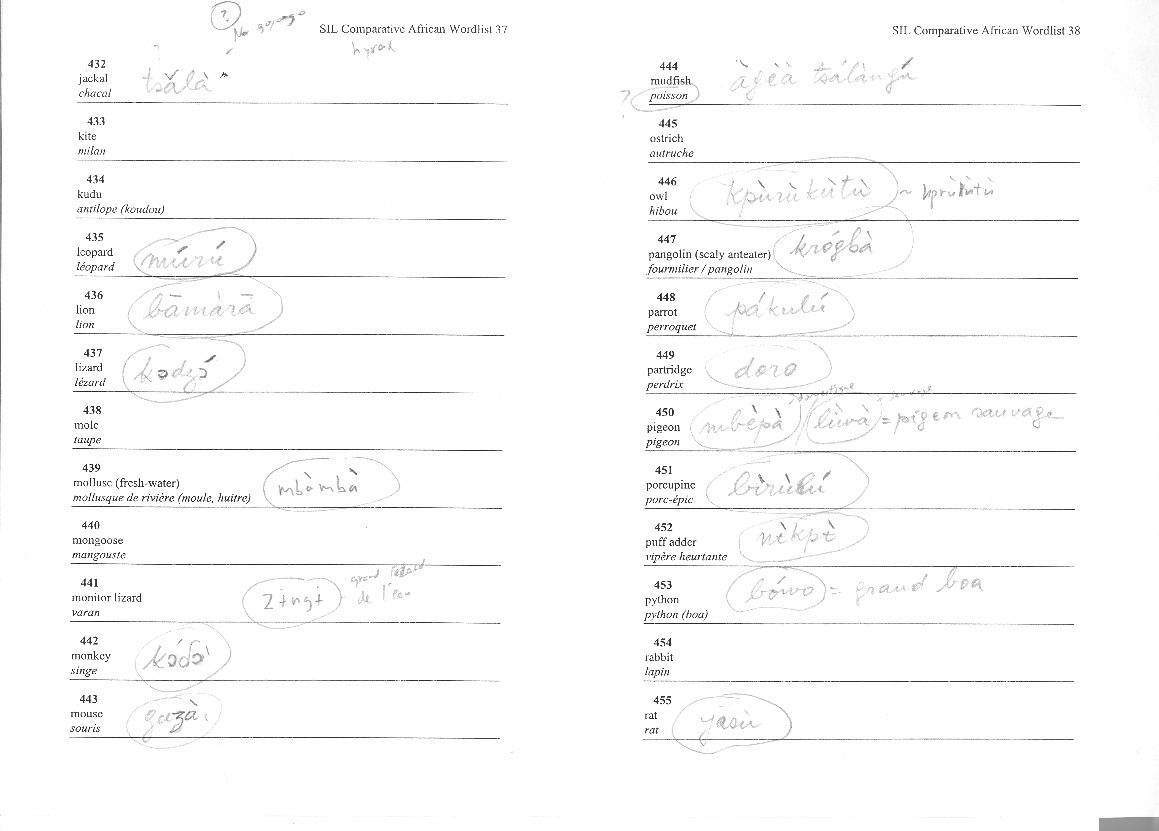 ?
SIL Comparative African Wordlist 37
432
jackal tsǎlà
chacal
433
kite
milan
434
kudu
antilope (koudou)
435
leopard múrú
léopard
436
lion bāmàrā
lion
437
lizard
lézard
438
mole
taupe
439
mollusc (fresh-water) mbòmbà
mollusque de rivière (moule, huitre)
440
mongoose
mangouste
441 grand lézard
monitor lizard zɨngɨ de l'eau
varan
442
monkey kɔ́ɗɔ̀
singe
443
mouse
souris
SIL Comparative African Wordlist 38
444
mudfish àgèà tsálàngú
? poisson
445
ostrich
autruche
446
owl kpùrùkùtù ~ kprùkùtù
hibou
447
pangolin (scaly anteater) krógbà
fourmilier / pangolin
448
parrot pákulú
perroquet
449
partridge doro
perdrix
domestique sauvage
450
pigeon mbèpà = pigeon sauvage
pigeon
451
porcupine
porc-épic
452
puff adder
vipère heurtante
453
python bówo = grand boa
python (boa)
454
rabbit
lapin
455
rat yasù
rat